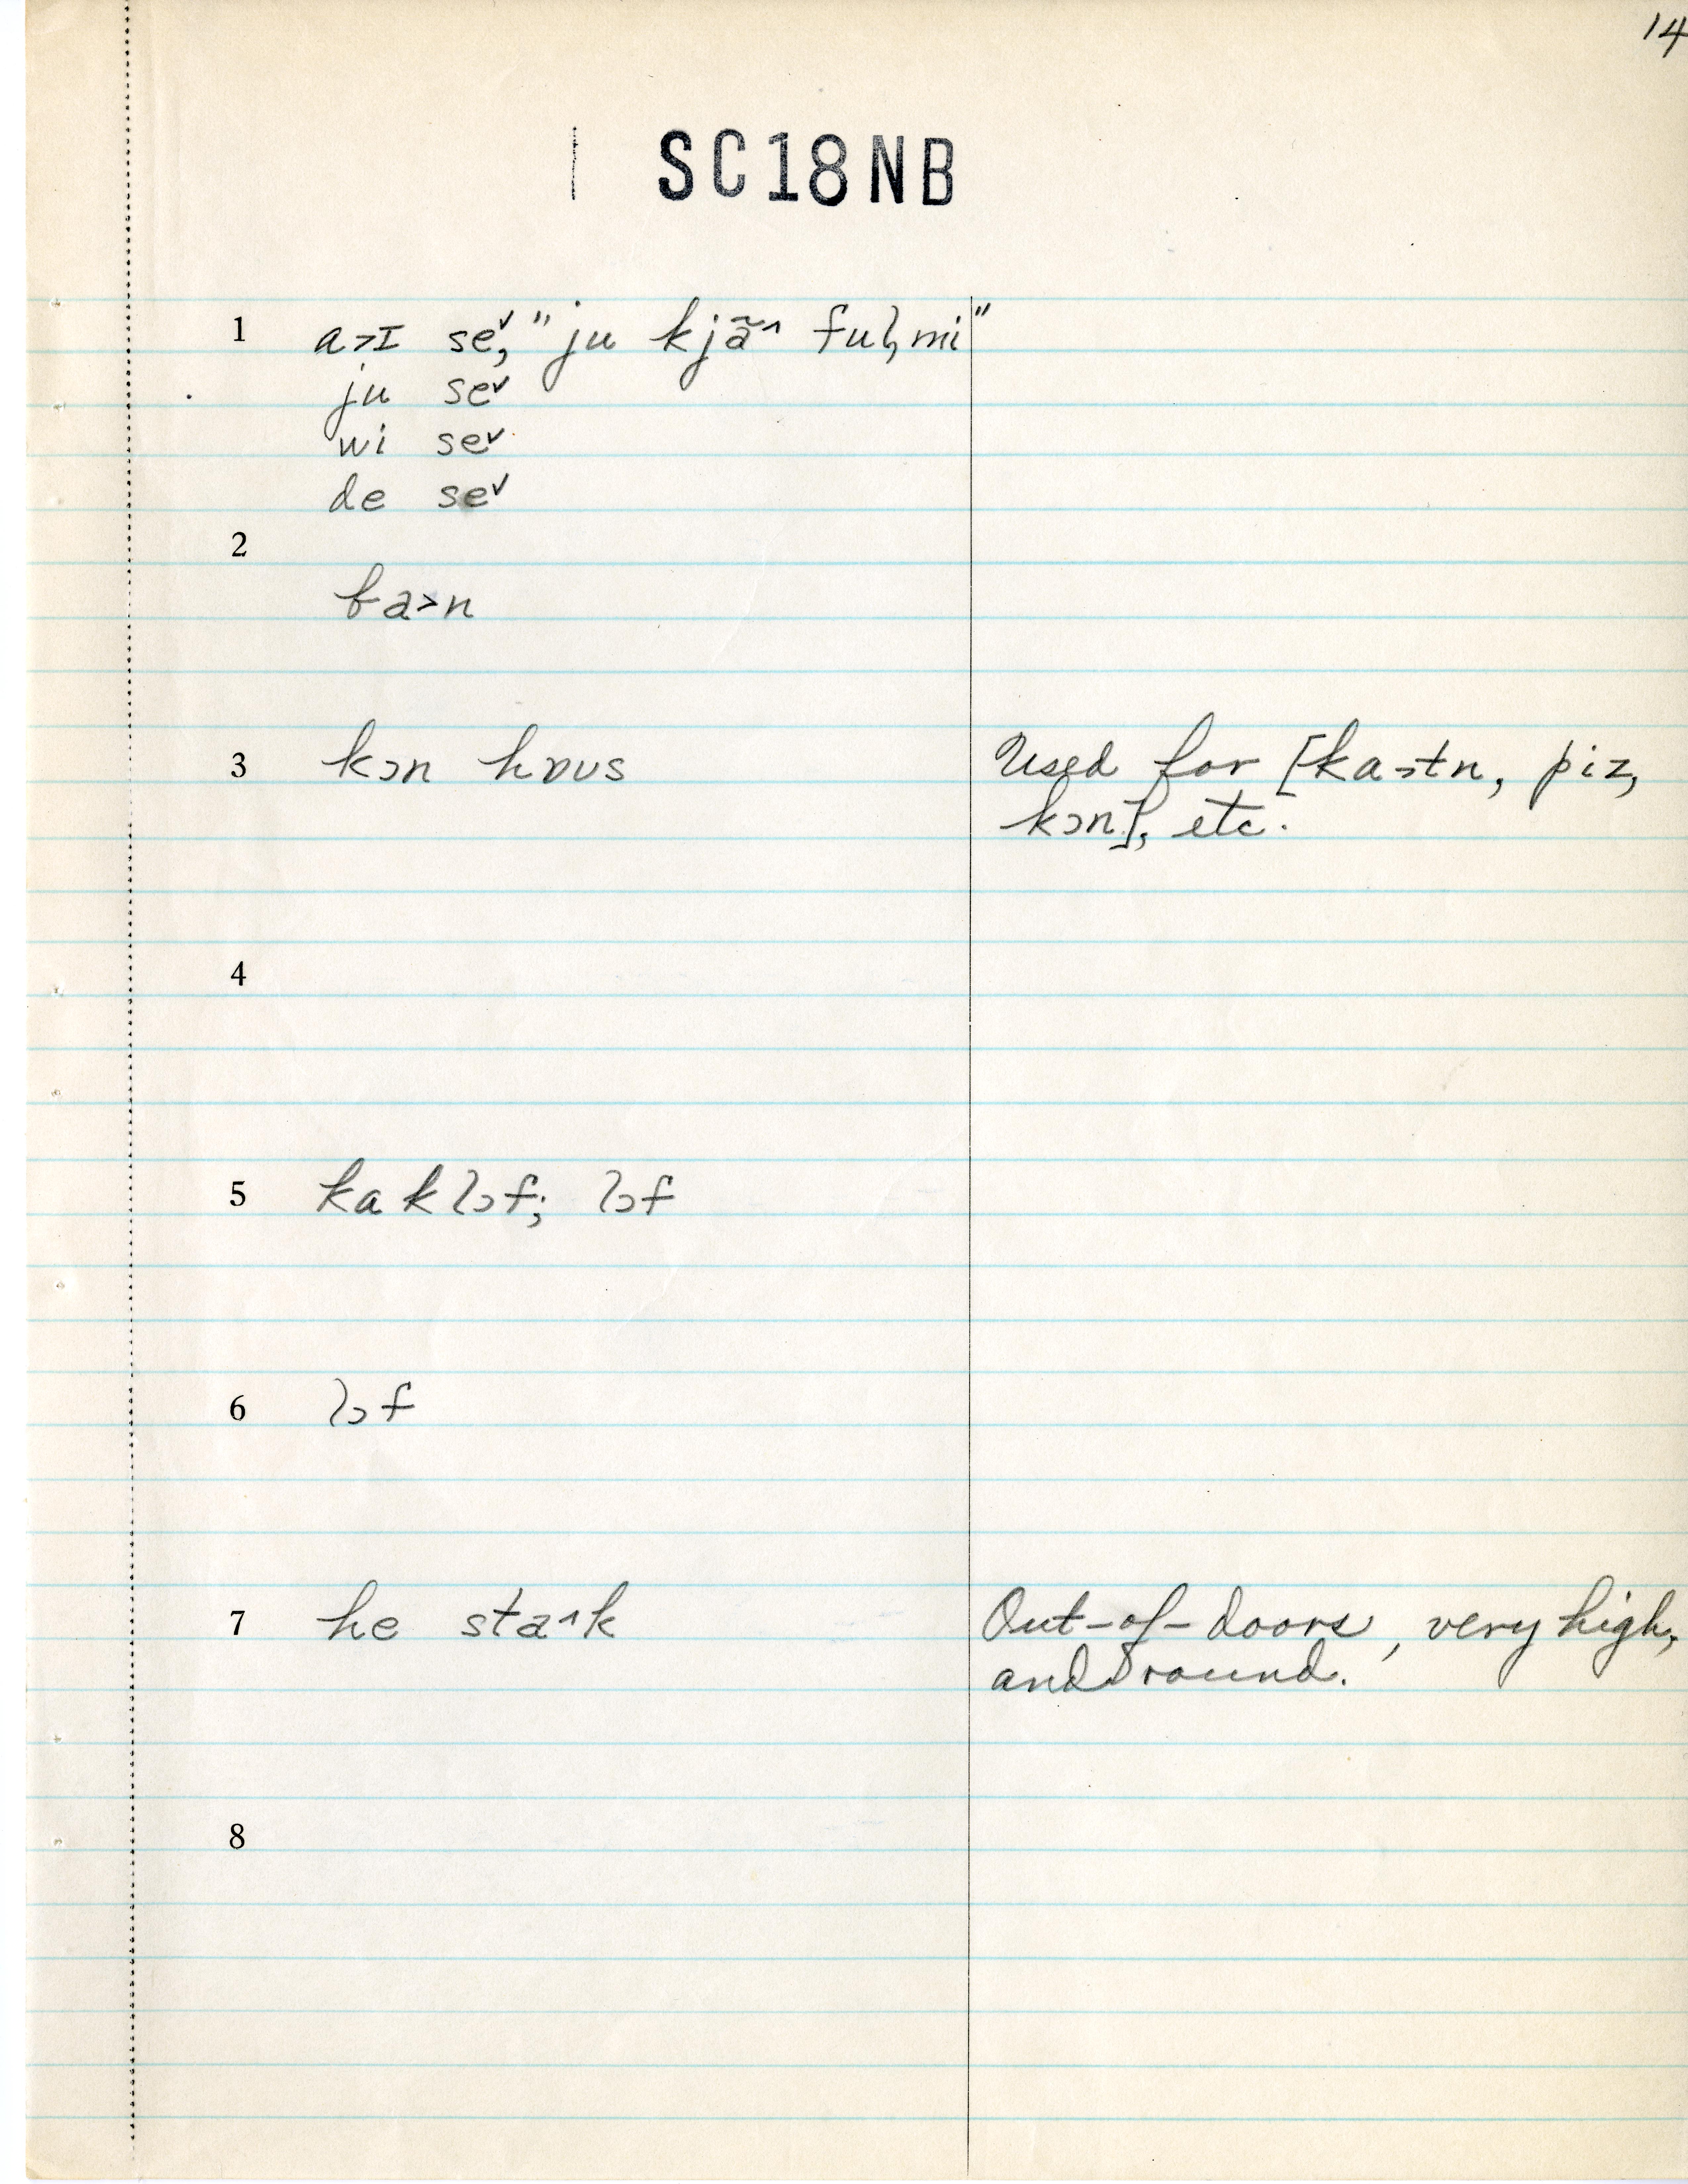 14
SC18NB
1 a>ɪ se˅, "ju kjã˄ fuḷ mi"
ju se˅
wi se˅
de se˅
2
ba>n
3 kɔn hɒʊs Used for [ka>tn, piz,
kɔn], etc.
4
5 kaklɔf; lɔf
6 lɔf
7 he sta˄k Out-of-doors, very high,
and round.
8